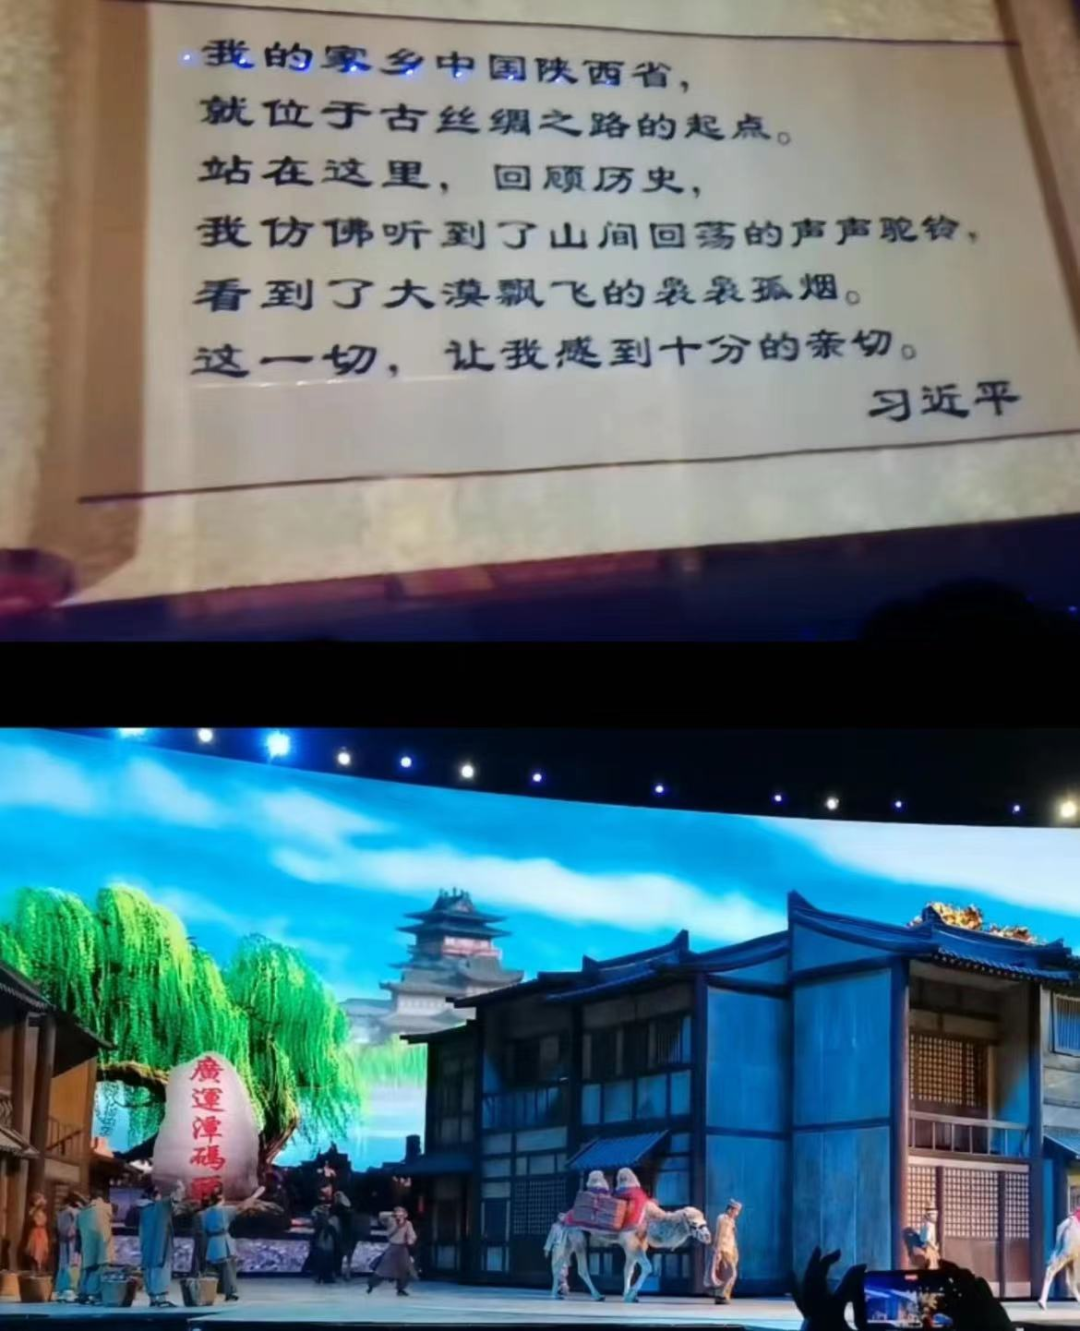 我的家乡中国陕西省，
就位于古丝绸之路的起点。
站在这里，回顾历史，
我仿佛听到了山间回荡的声声驼铃，
看到了大漠飘飞的袅袅孤烟。
这一切，让我感到十分的亲切。
习近平
廣運潭碼頭